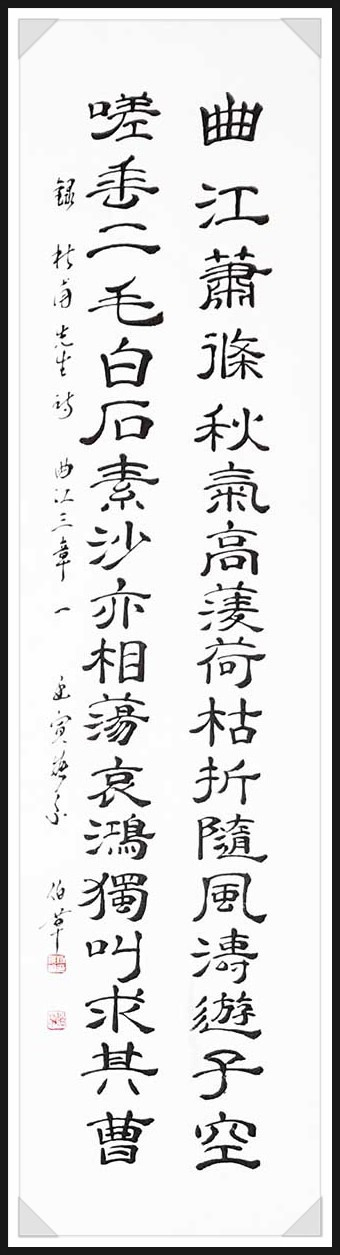 曲江蕭條秋氣高蔆荷枯折隨風濤遊子空
嗟垂二毛白石素沙亦相蕩哀鴻獨叫求其曹
錄杜甫先生詩曲江三章一 寅 伯華